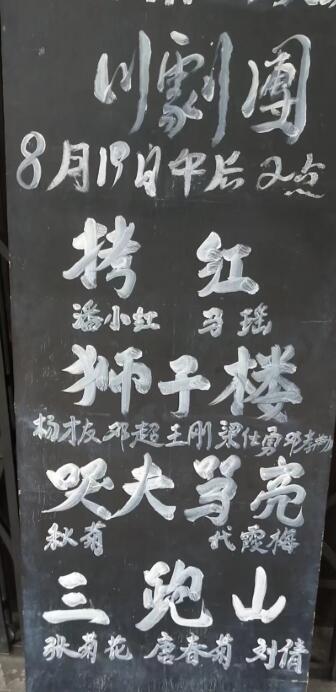 川劇團
8月19日午后2点
拷红
潘小红 马瑶
狮子楼
杨才友 邓超 王刚 梁仕勇 邓李
哭夫骂亮
秋菊 代霞梅
三跑山
张菊花 唐春菊 刘倩